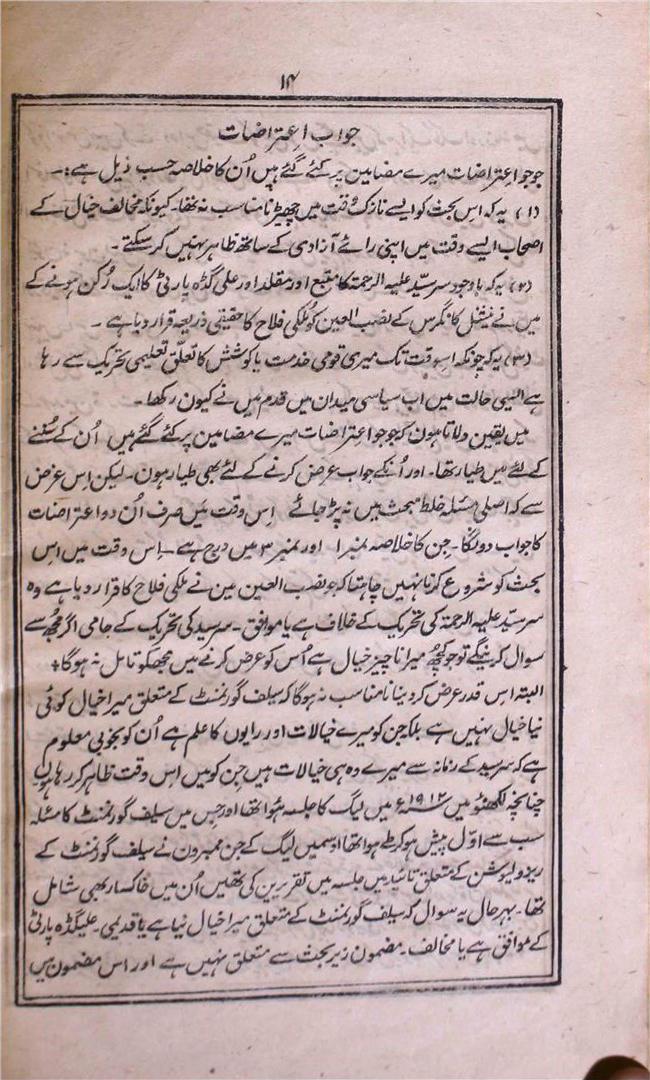 ۱۴
جواب اعتراضات
جو جو اعتراضات میرے مضامین پر کئے گئے ہیں اُن کا خلاصہ حسب ذیل ہے:۔
(۱) یہ کہ اِس بحث کو ایسے نازک وقت میں چھیڑنا مناسب نہ تھا۔ کیونکہ مخالف خیال کے
اصحاب ایسے وقت میں اپنی رائے آزادی کے ساتھ ظاہر نہیں کر سکتے۔
(۲) یہ کہ باوجود سر سیّد علیہ الرحمۃ کا متبع اور مقلد اور علی گڈہ پارٹی کا ایک رُکن ہونے کے
میں نے نیشنل کانگرس کے نصب العین کو مُلکی فلاح کا حقیقی ذریعہ قرار دیا ہے۔
(۳) یہ کہ چونکہ اسوقت تک میری قومی خدمت یا کوشش کا تعلّق تعلیمی تحریک سے رہا
ہے ایسی حالت میں اب سیاسی میدان میں قدم میں نے کیوں رکھا۔
میں یقین دلاتا ہون کہ جو جو اعتراضات میرے مضامین پر کئے گئے ہیں اُن کے سُننے
کے لئے میں طیار تھا۔ اور اُنکے جواب عرض کرنے کے لئے بھی طیار ہون۔ لیکن اِس غرض
سے کہ اصلی مسئلہ خلط مبحث میں نہ پڑ جائے اِس وقت میں صرف اُن دو اعتراضات
کا جواب دونگا۔ جن کا خلاصہ نمبر ۱ اور نمبر ۳ میں درج ہے۔ اِس وقت میں اس
بحث کو شروع کرنا نہیں چاہتا کہ جو نصب العین مین نے ملکی فلاح کا قرار دیا ہے وہ
سر سیّد علیہ الرحمۃ کی تحریک کے خلاف ہے یا موافق۔ سر سید کی تحریک کے حامی اگر مجھ سے
سوال کرینگے تو جو کچھ میرا ناچیز خیال ہے اُس کو عرض کرنے میں مجھکو تامل نہ ہوگا+
البتہ اس قدر عرض کر دینا نامناسب نہ ہوگا کہ سیلف گورنمنٹ کے متعلق میرا خیال کوئی
نیا خیال نہیں ہے بلکہ جن کو میرے خیالات اور رایوں کا علم ہے اُن کو بخوبی معلوم
ہے کہ سر سید کے زمانہ سے میرے وہ ہی خیالات ہیں جن کو میں اس وقت ظاہر کر رہا ہوں
چنانچہ لکھنؤ میں ۱۹۱۲ء میں لیگ کا جلسہ ہوا تھا اور جس میں سیلف گورنمنٹ کا مسئلہ
سب سے اوّل پیش ہو کر طے ہوا تھا اوسمیں لیگ کے جن ممبرون نے سیلف گورنمنٹ کے
ریزولیوشن کے متعلق تائید میں جلسہ میں تقریرین کی تھیں اُن میں خاکسار بھی شامل
تھا۔ بہرحال یہ سوال کہ سیلف گورنمنٹ کے متعلق میرا خیال نیا ہے یا قدیمی۔ علیگڈہ پارٹی
کے موافق ہے یا مخالف۔ مضمون زیر بحث سے متعلق نہیں ہے اور اس مضمون میں